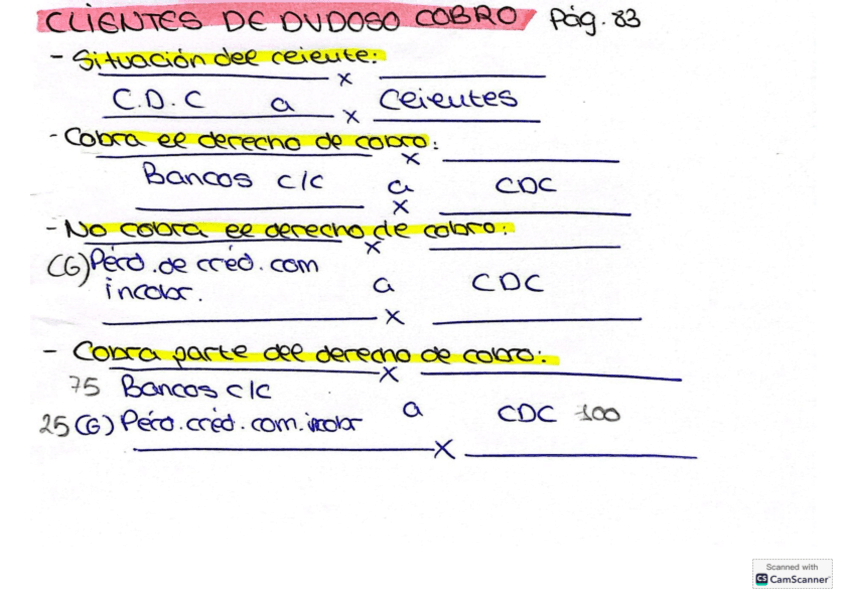 CLIENTES DE DUDOSO COBRO Pág. 83
- Situación del cliente:
x
C.D.C a Clientes
x
- Cobra el derecho de cobro:
x
Bancos c/c a CDC
x
- No cobra el derecho de cobro:
x
(G) Pérd. de créd. com
incobr. a CDC
x
- Cobra parte del derecho de cobro:
x
75 Bancos c/c
25 (G) Pérd. créd. com. incobr a CDC 100
x
Scanned with
CS CamScanner